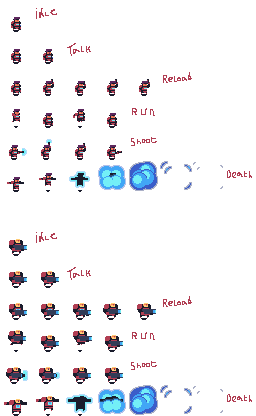 idle
Talk
Reload
Run
Shoot
Death
idle
Talk
Reload
Run
Shoot
Death